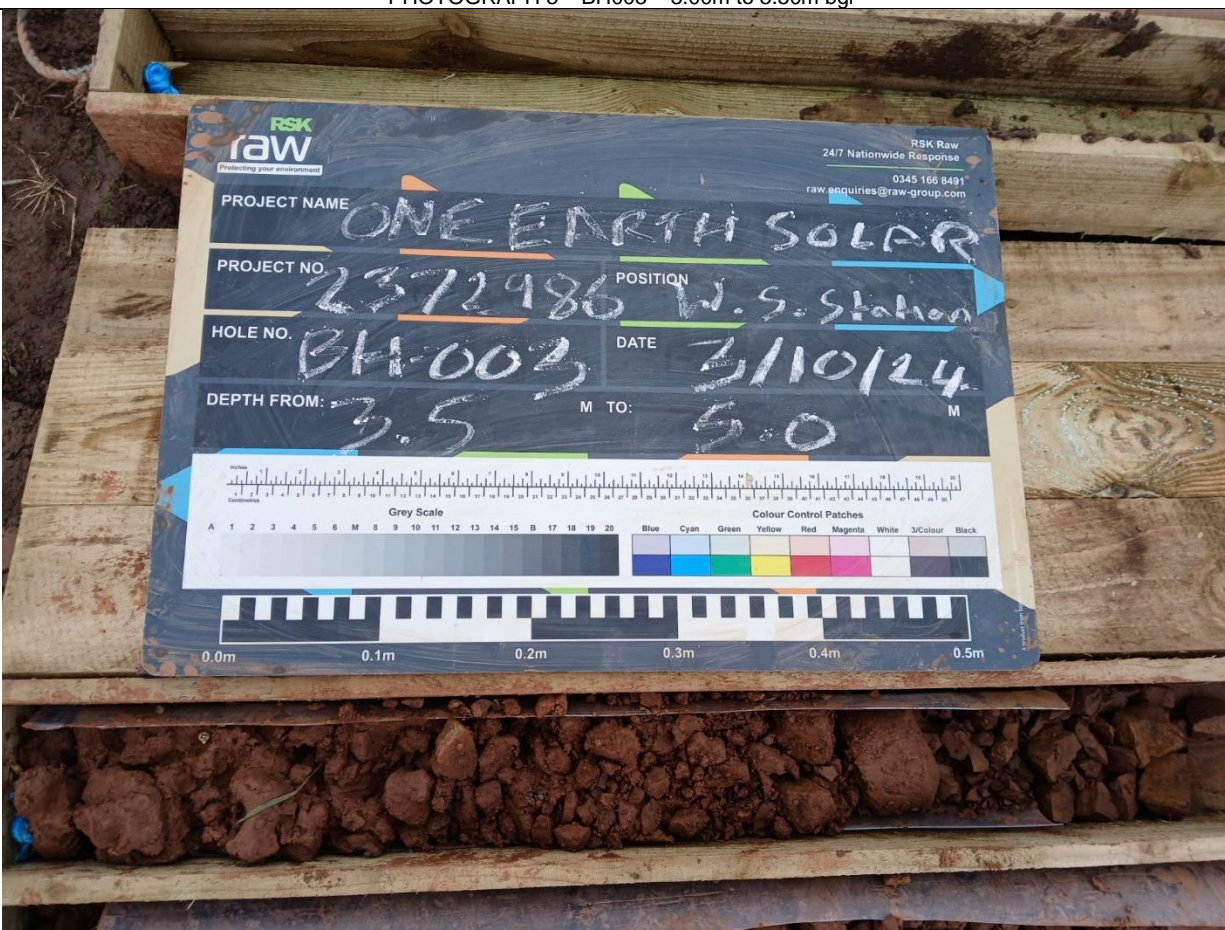 RSK
raw
Protecting your environment
RSK Raw
24/7 Nationwide Response
0345 166 8491
raw.enquiries@raw-group.com
PROJECT NAME ONE EARTH SOLAR
PROJECT NO. 2372986 POSITION W.S. Station
HOLE NO. BH-003 DATE 3/10/24
DEPTH FROM: 3.5 M TO: 5.0 M
Inches 1 2 3 4 5 6 7 8 9 10 11 12 13 14 15 16 17 18 19 20
Centimetres
Grey Scale Colour Control Patches
A 1 2 3 4 5 6 M 8 9 10 11 12 13 14 15 B 17 18 19 20 Blue Cyan Green Yellow Red Magenta White 3/Colour Black
0.0m 0.1m 0.2m 0.3m 0.4m 0.5m